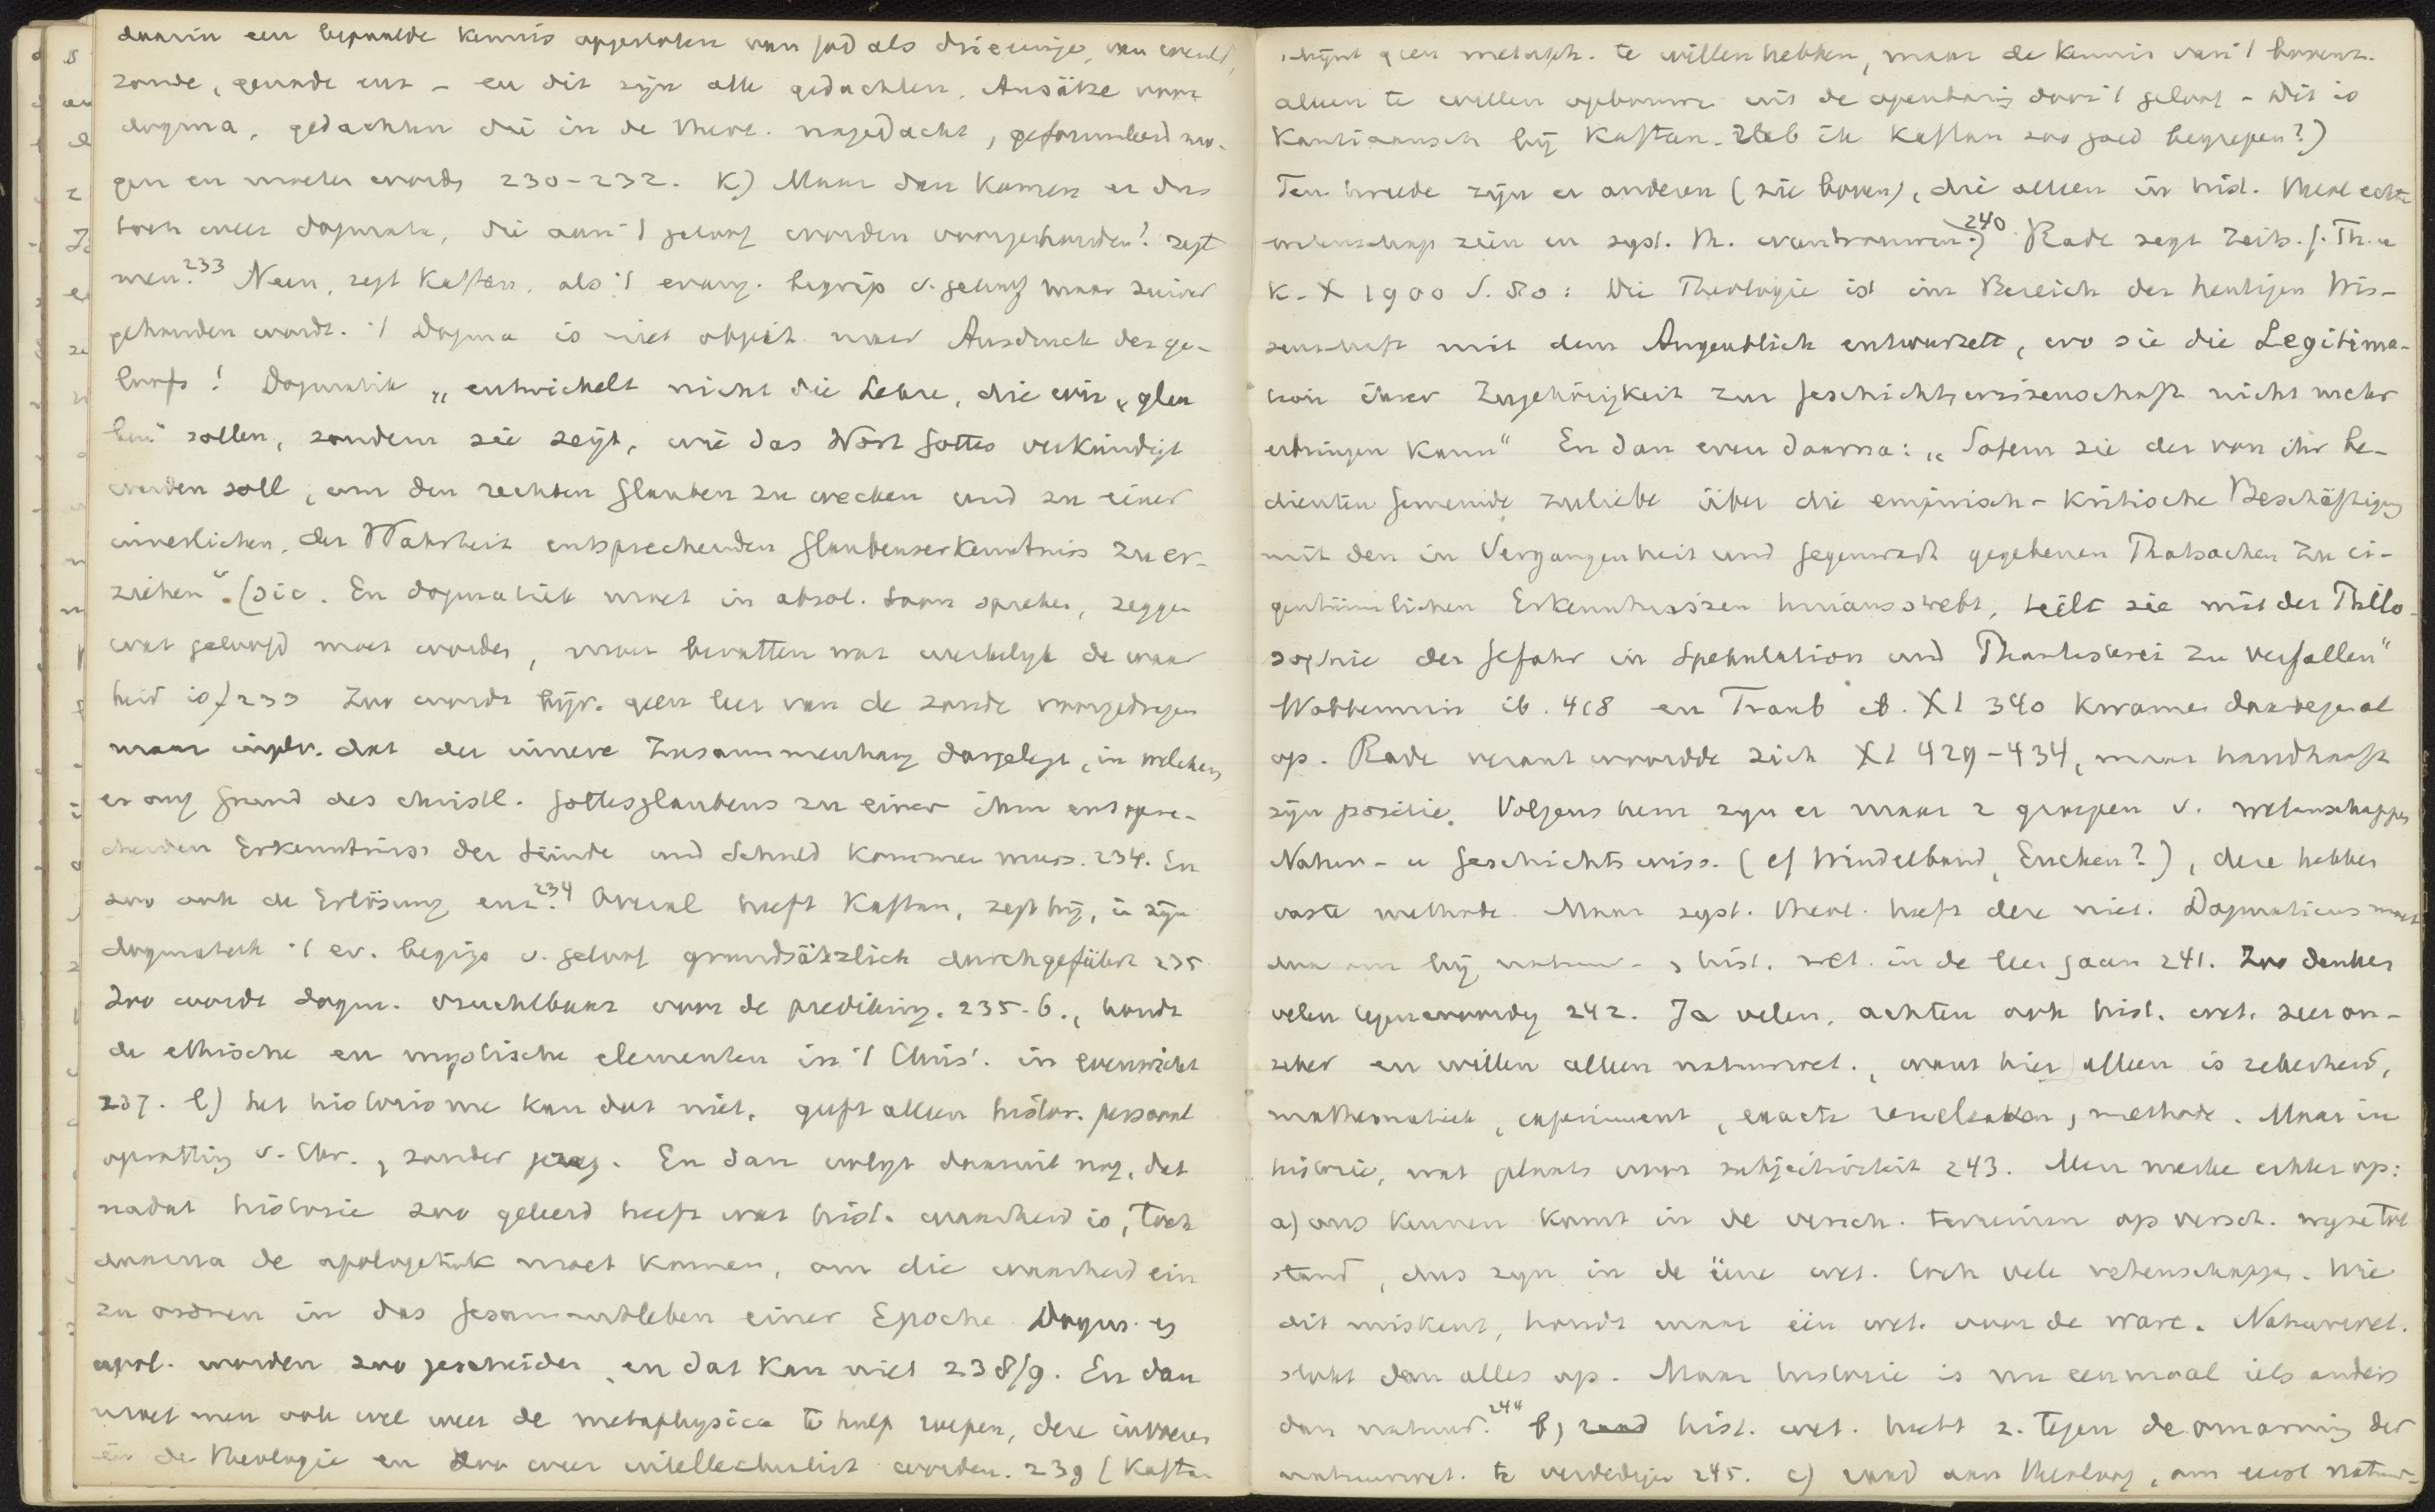 daarin een bepaalde kennis opgesloten van God als drieeenige, van wereld,
zonde, genade enz – en dit zijn alle gedachten, Ansätze voor
dogma, gedachten die in de theol. nagedacht, geformuleerd mo-
gen en moeten worden 230-232. k) Maar dan komen er dus
toch weer dogmata, die aan 't geloof worden voorgehouden? zegt
men.233 Neen, zegt Kaftan, als 't evang. begrip v. geloof maar zuiver
gehouden wordt. 't Dogma is niet objekt maar Ausdruck des ge-
loofs! Dogmatik „entwickelt nicht die Lehre, die wir „glau
ben" sollen, sondern sie zeigt, wie das Wort Gottes verkündigt
werden soll, um den rechten Glauben zu wecken und zu einer
innerlichen, der Wahrheit entsprechenden Glaubenserkenntniss zu er-
ziehen". (sic. En dogmatiek moet in absol. toon spreken, zeggen
wat geloofd moet worden, maar bevatten wat werkelijk de waar
heid is) 233 Zoo wordt bijv. geen leer van de zonde voorgedragen
maar der innere Zusammenhang dargelegt, in welchem
er auf Grund des christl. Gottesglaubens zu einer ihm entspre-
chenden Erkenntniss der Sünde und Schuld kommen muss. 234. En
zoo ook de Erlösung enz.234 Overal heeft Kaftan, zegt hij, in zijn
dogmatiek 't ev. begrip v. geloof grundsätzlich durchgeführt 235
Zoo wordt dogm. vruchtbaar voor de prediking. 235-6., houdt
de ethische en mystische elementen in 't Chris. in evenwicht
237. l) het historisme kan dat niet, geeft alleen histor. persoonl
opvatting v. Chr., zonder gezag. En dan volgt daaruit nog, dat
nadat historie zoo geleerd heeft wat hist. waarheid is, toch
daarna de apologetiek moet komen, om die waarheid ein
zu ordnen in das Gesammtleben einer Epoche Dogm. en
apol. worden zoo gescheiden, en dat kan niet 238/9. En dan
moet men ook wel weer de metaphysica te hulp roepen, deze invoeren
in de theologie en zoo weer intellectualist worden. 239 (Kaftan
schijnt geen metaph. te willen hebben, maar de kennis van 't bovenz.
alleen te willen opbouwen uit de openbaring door 't geloof – Dit is
Kantiaansch bij Kaftan. Heb ik Kaftan zoo goed begrepen?)
Ten tweede zijn er anderen (zie boven), die alleen in hist. theol echte
wetenschap zien en syst. th. wantrouwen.240 Rade zegt Zeits. f. Th. u
K. X 1900 S. 80: Die Theologie ist im Bereich der heutigen Wis-
senschaft mit dem Augenblick entwurzelt, wo sie die Legitima-
tion ihrer Zugehörigkeit zur Geschichtswissenschaft nicht mehr
erbringen kann" En dan even daarna: „Sofern sie der von ihr be-
dienten Gemeinde zuliebe über die empirisch-kritische Beschäftigung
mit den in Vergangenheit und Gegenwart gegebenen Thatsachen zu ei-
gentümlichen Erkenntnissen hinausstrebt, teilt sie mit der Philo-
sophie der Gefahr in Spekulation und Phantasterei zu verfallen"
Wobbermin ib. 418 en Traub ib. XI 340 kwamen daartegen al
op. Rade verantwoordde zich XI 429-434, maar handhaaft
zijn positie. Volgens hem zijn er maar 2 groepen v. wetenschappen
Natur- u Geschichtswiss. (cf Windelband, Eucken?), deze hebben
vaste methode. Maar syst. theol. heeft deze niet. Dogmaticus moet
dan om bij natuur-, hist. wet. in de leer gaan 241. Zoo denken
velen tegenwoordig 242. Ja velen, achten ook hist. wet. zeer on-
zeker en willen alleen natuurwet., want hier alleen is zekerheid,
mathematiek, experiment, exacte resultaten, methode. Maar in
historie, wat plaats voor subjectiviteit 243. Men merke echter op:
a) ons kennen komt in de versch. terreinen op versch. wijze tot
stand, dus zijn in de ééne wet. toch vele wetenschappen. Wie
dit miskent, houdt maar één wet. voor de ware. Natuurwet.
slokt dan alles op. Maar historie is nu eenmaal iets anders
dan natuur.244 b) hist. wet. hebt z. tegen de omarming der
natuurwet. te verdedigen 245. c) raad aan theoloog, om eerst natuur-